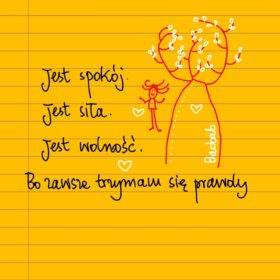 Jest spokój.
Jest siła.
Jest wolność.
Baobab
Bo zawsze trzymam się prawdy